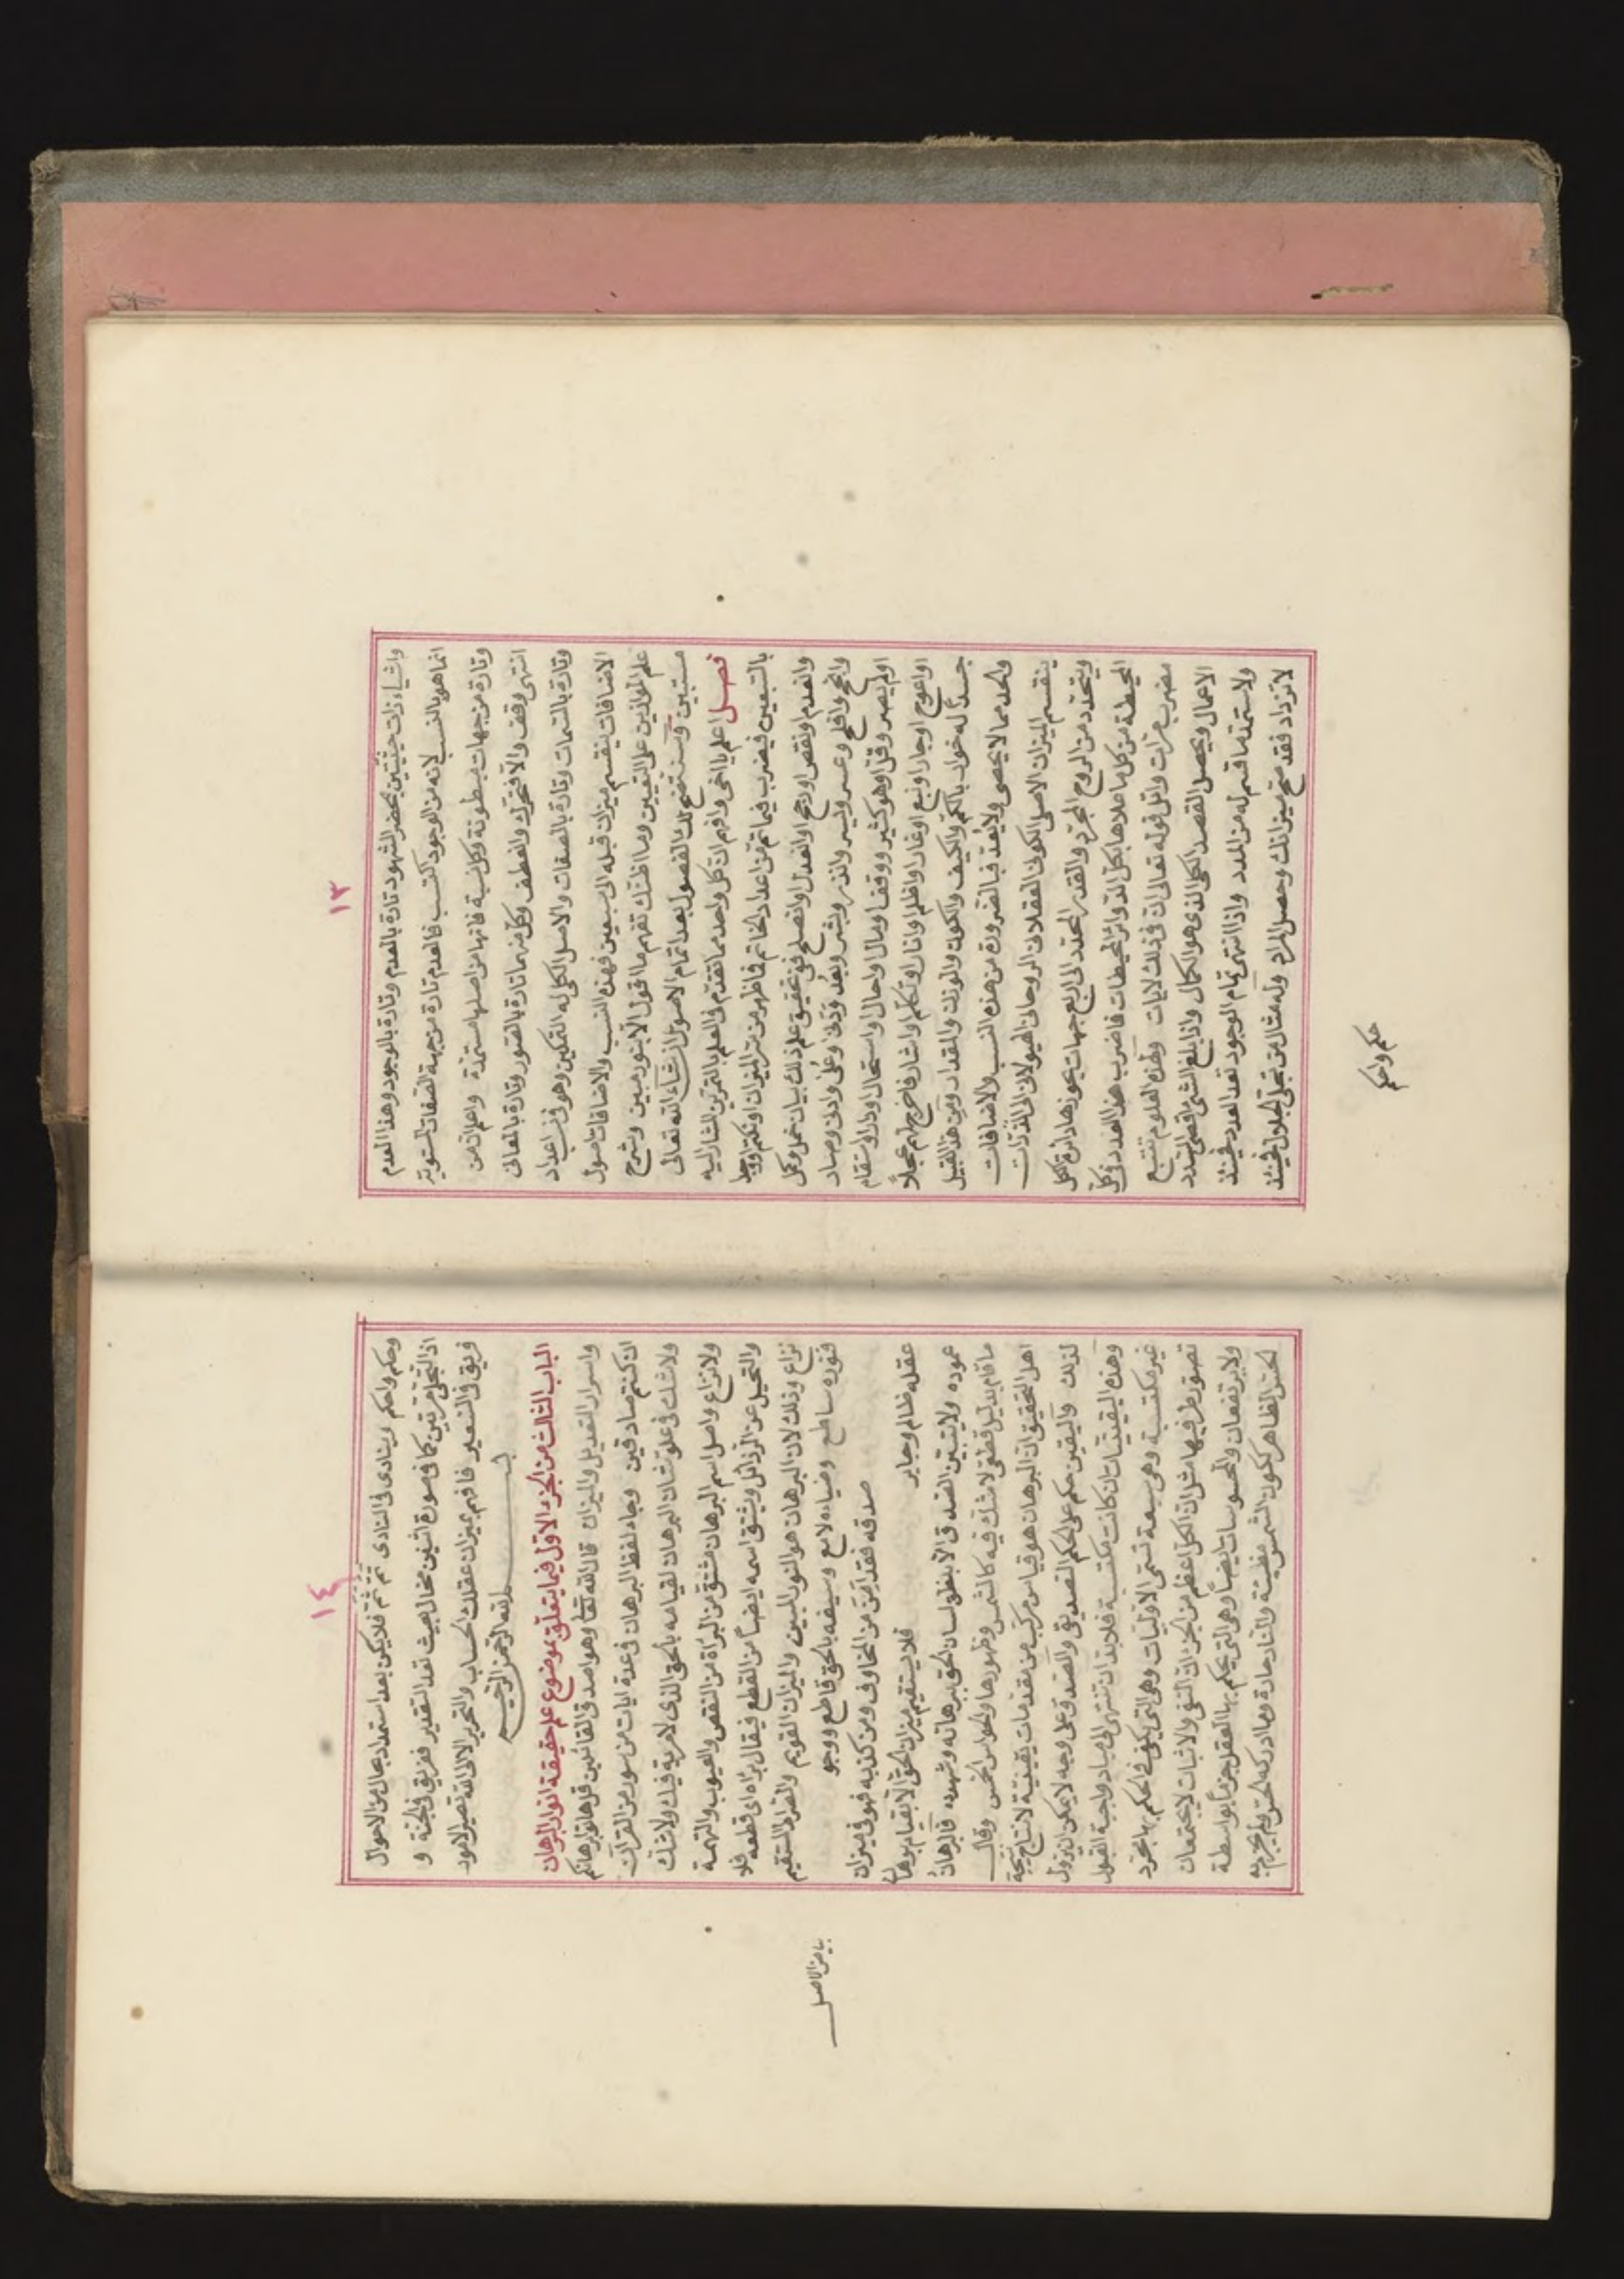 ١٣
واشياء ذات حيثيتين بحضر الشهود تارة بالعدم وتارة بالوجود وهذا العدم
انما هو بالنسب لانه من الوجود اكتسب فالعدم تارة من جهة الصفات المستوية
وتارة من جهات مبطونة وكل نسبة فانها من اصلها مستمدة واعلم ان من
انتهى وقف والا فتحرك وانعطف وكل منهما تارة بالتصور وتارة بالمعانى
وتارة بالسمات وتارة بالصفات والاصل الكلى له التمكين وهو فى نسب اعداد
الاضافات ينقسم ميزان قبله الى سبعين فهذه النسب والاضافات اصول
علم الموازين على التعيين وما اظنك تفهم ما اقول الا بنور مبين وشرح
مستبين وسنتضح لك الفصول بعد اتمام الاصول ان شاء الله تعالى
فصل اعلم يا اخى وافهم ان كل واحد مما تقدم فى العلم بالتمرين المشار اليه
بالسبعين فيضرب فيما تم من اعداد الخاتم فاظهر من سر الميزان او نكتم او وجد
وانعدم او نقص او رجح او انعدل او انصلح ففى تحقيق علم ذلك بيان خمل وكمل
وانجح وافلح وعسر ويسر وانذر وبشر وبعد ودنى وعلى وادنى وصاد
او لم يصر وقل او هو كثير ووقف او مال او احال او استحال او دار او استقام
او اعوج او جار او نبع او غار او اظلم او انار او تكلم او اشار فاخرج لهم عجلا
جسدا له خوار بالكم والكيف والكون واللون والوزن والمقدار ومن هذا القبيل
واحد مما لا يحصى ولا يعد فبالضرورة من هذه النسب والاضافات
ينقسم الميزان الاصلى الكونى العقلانى الروحانى الهيولانى الى الذرات
ويتحدد من الروح المجرد والقدر المحدد الى اربع جهات يحوزها دائرة الكل
المحيطة من كل ما ملاها بكل الدوائر المحيطات فاضرب هذا العدد فى كل
مضرب مرات واتل قوله تعالى ان فى ذلك لايات ولهذه العلوم تتبع
الاعمال ويحصل القصد الكلى الذى هو الكمال واذا بلغ الشئ اقصى المدد
ولاستمد ما قسم له من المدد واذا انتهى تمام الوجود نفد العدد فحينئذ
لا تزداد فقد صح ميزانك وحصل المراد وله مثال من تجلى الجلال فحينئذ
حكم واحكم
١٤
وحكم واحكم وينادى فى النادى ثم ثم فلا يكن بعد استمداد بحال من الاحوال
اذ التجلى مرتين كما فى سورة اثنين محال بحيث نفد التقدير ففريق فى الجنة و
فريق فى السعير فافهم بميزان عقلك الحساب والتحرير الا الى الله تصير الامور
بسم الله الرحمن الرحيم
الباب الثالث من الجزء الاول فيما يتعلق بموضوع علم حقيقة انوار البرهان
واسرار التعديل والميزان قال الله تعالى وهو اصدق القائلين قل هاتوا برهانكم
ان كنتم صادقين وجاء لفظ البرهان فى عدة ايات من سور من القرآن
ولا شك فى علو شان البرهان لقيامه بالحق الذى لا مرية فيه ولا شك
ولا نزاع واصل اسم البرهان مشتق من البراة من النقص والعيوب والتهمة
والتحيل عن الرذائل ويشتق اسمه ايضا من القطع فيقال براه اى قطعه فلا
نزاع وذلك لان البرهان هو النور المبين والميزان القويم والصراط المستقيم
فنوره ساطع وضياه لامع وسيفه بالحق قاطع ووجو
صدقه فقد امن من المخاوف ومن كذبه فهو فى ميزان
عقله ظالم وجاير فلا يستقيم ميزان الحق الا بقيام برهان
عموده ولا يتبين الصدق الا بنطق لسان الحق ببرهانه وشهوده فالبرهان
ما قام بدليل قطعى لا شك فيه كالشمس وظهورها والحواس الخمس وقال
اهل التحقيق ان البرهان هو قياس مركب من مقدمات يقينية لانتاج نتيجة
لذلك واليقين حكم على الحكم التصديقى والصدق على وجه لا يمكن ان يزول
وهذه اليقينيات ان كانت مكتسبة فلا بد ان تنتهى الى مباد واجبة القبول
غير مكتسبة وهى سبعة تسمى الاوليات وهى التى يكفى فى الحكم بها مجرد
تصور طرفيها مثل ان الكل اعظم من الجزء ان النفى والاثبات لا يجتمعان
ولا يرتفعان والمحسوسات ايضا وهى التى يحكم بها العقل جزما بواسطة
الحس الظاهر ككون الشمس مضيئة والنار حارة وما ادركه الحس ولم يجزم به
بياض الاصل